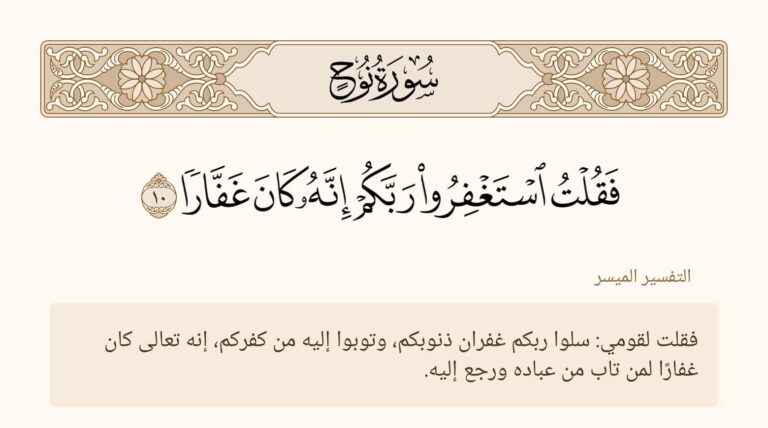 سُورَةُ نُوحٍ
فَقُلْتُ ٱسْتَغْفِرُوا۟ رَبَّكُمْ إِنَّهُۥ كَانَ غَفَّارًا ١٠
التفسير الميسر
فقلت لقومي: سلوا ربكم غفران ذنوبكم، وتوبوا إليه من كفركم، إنه تعالى كان
غفارًا لمن تاب من عباده ورجع إليه.